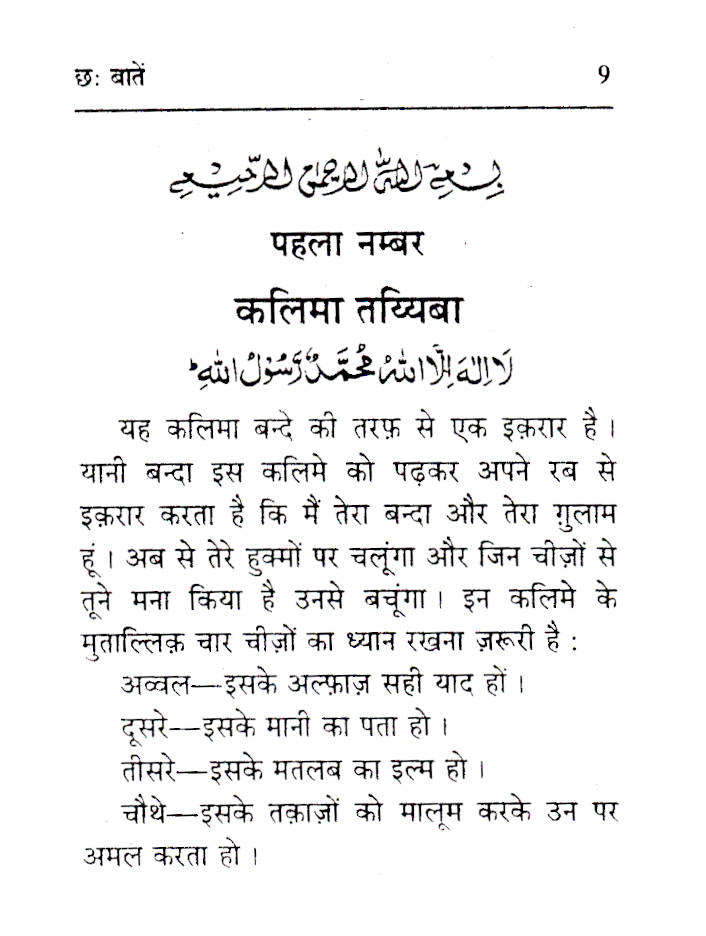 छः बातें 9
بِسْمِ اللهِ الرَّحْمٰنِ الرَّحِيْمِ
पहला नम्बर
कलिमा तय्यिबा
لَا اِلٰهَ اِلَّا اللهُ مُحَمَّدٌ رَّسُوْلُ اللهِ ؕ
यह कलिमा बन्दे की तरफ़ से एक इक़रार है।
यानी बन्दा इस कलिमे को पढ़कर अपने रब से
इक़रार करता है कि मैं तेरा बन्दा और तेरा ग़ुलाम
हूं। अब से तेरे हुक्मों पर चलूंगा और जिन चीज़ों से
तूने मना किया है उनसे बचूंगा। इन कलिमे के
मुताल्लिक़ चार चीज़ों का ध्यान रखना ज़रूरी है :
अव्वल—इसके अल्फ़ाज़ सही याद हों।
दूसरे—इसके मानी का पता हो।
तीसरे—इसके मतलब का इल्म हो।
चौथे—इसके तक़ाज़ों को मालूम करके उन पर
अमल करता हो।